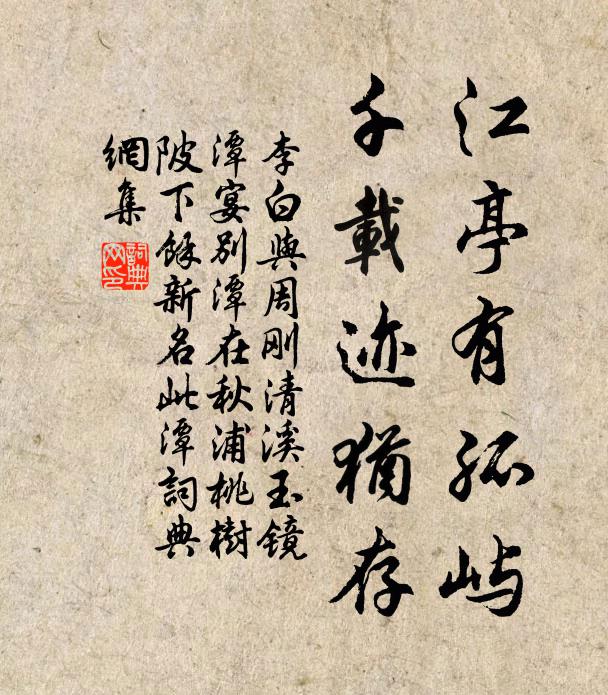 江亭有孤屿
千載迹猶存
李白與周刚清溪玉镜
潭宴别潭在秋浦桃樹
陂下馀新名此潭詞典
網集
詞典網印